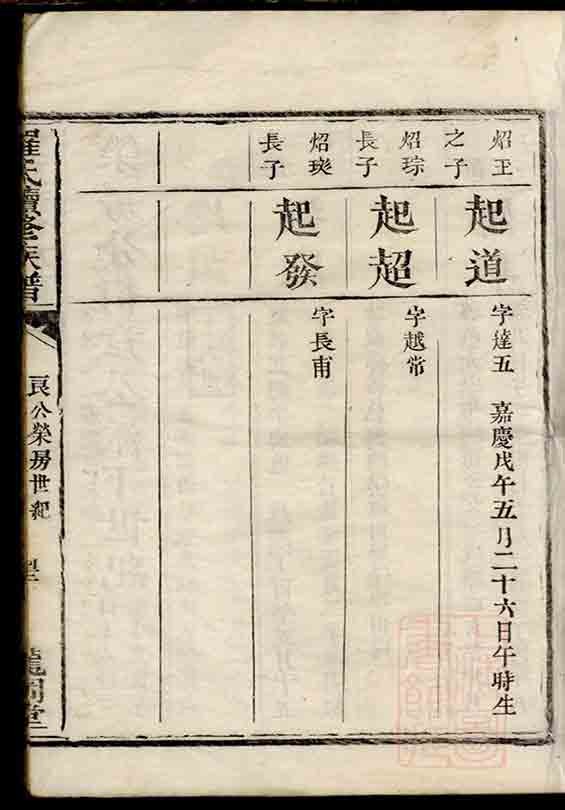 炤王
之子
起道
字達五 嘉慶戊午五月二十六日午時生
炤琮
長子
起超
字越常
炤琰
長子
起發
字長甫
羅氏續修族譜
良公榮房世紀